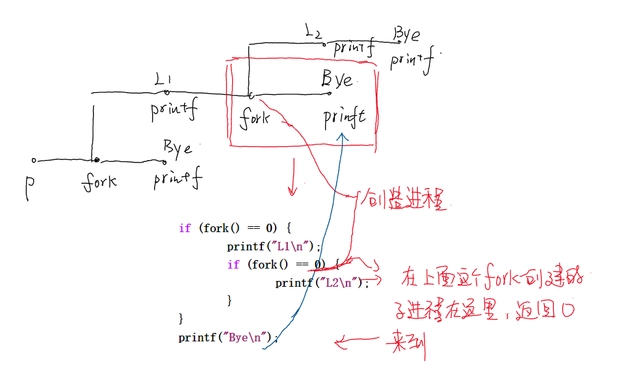 L2
printf
Bye
printf
L1
printf
fork
Bye
prinft
P
fork
Bye
printf
创建进程
if (fork() == 0) {
printf("L1\n");
if (fork() == 0) {
printf("L2\n");
}
}
printf("Bye\n");
在上面这个fork创建的
子进程在这里,返回0
来到